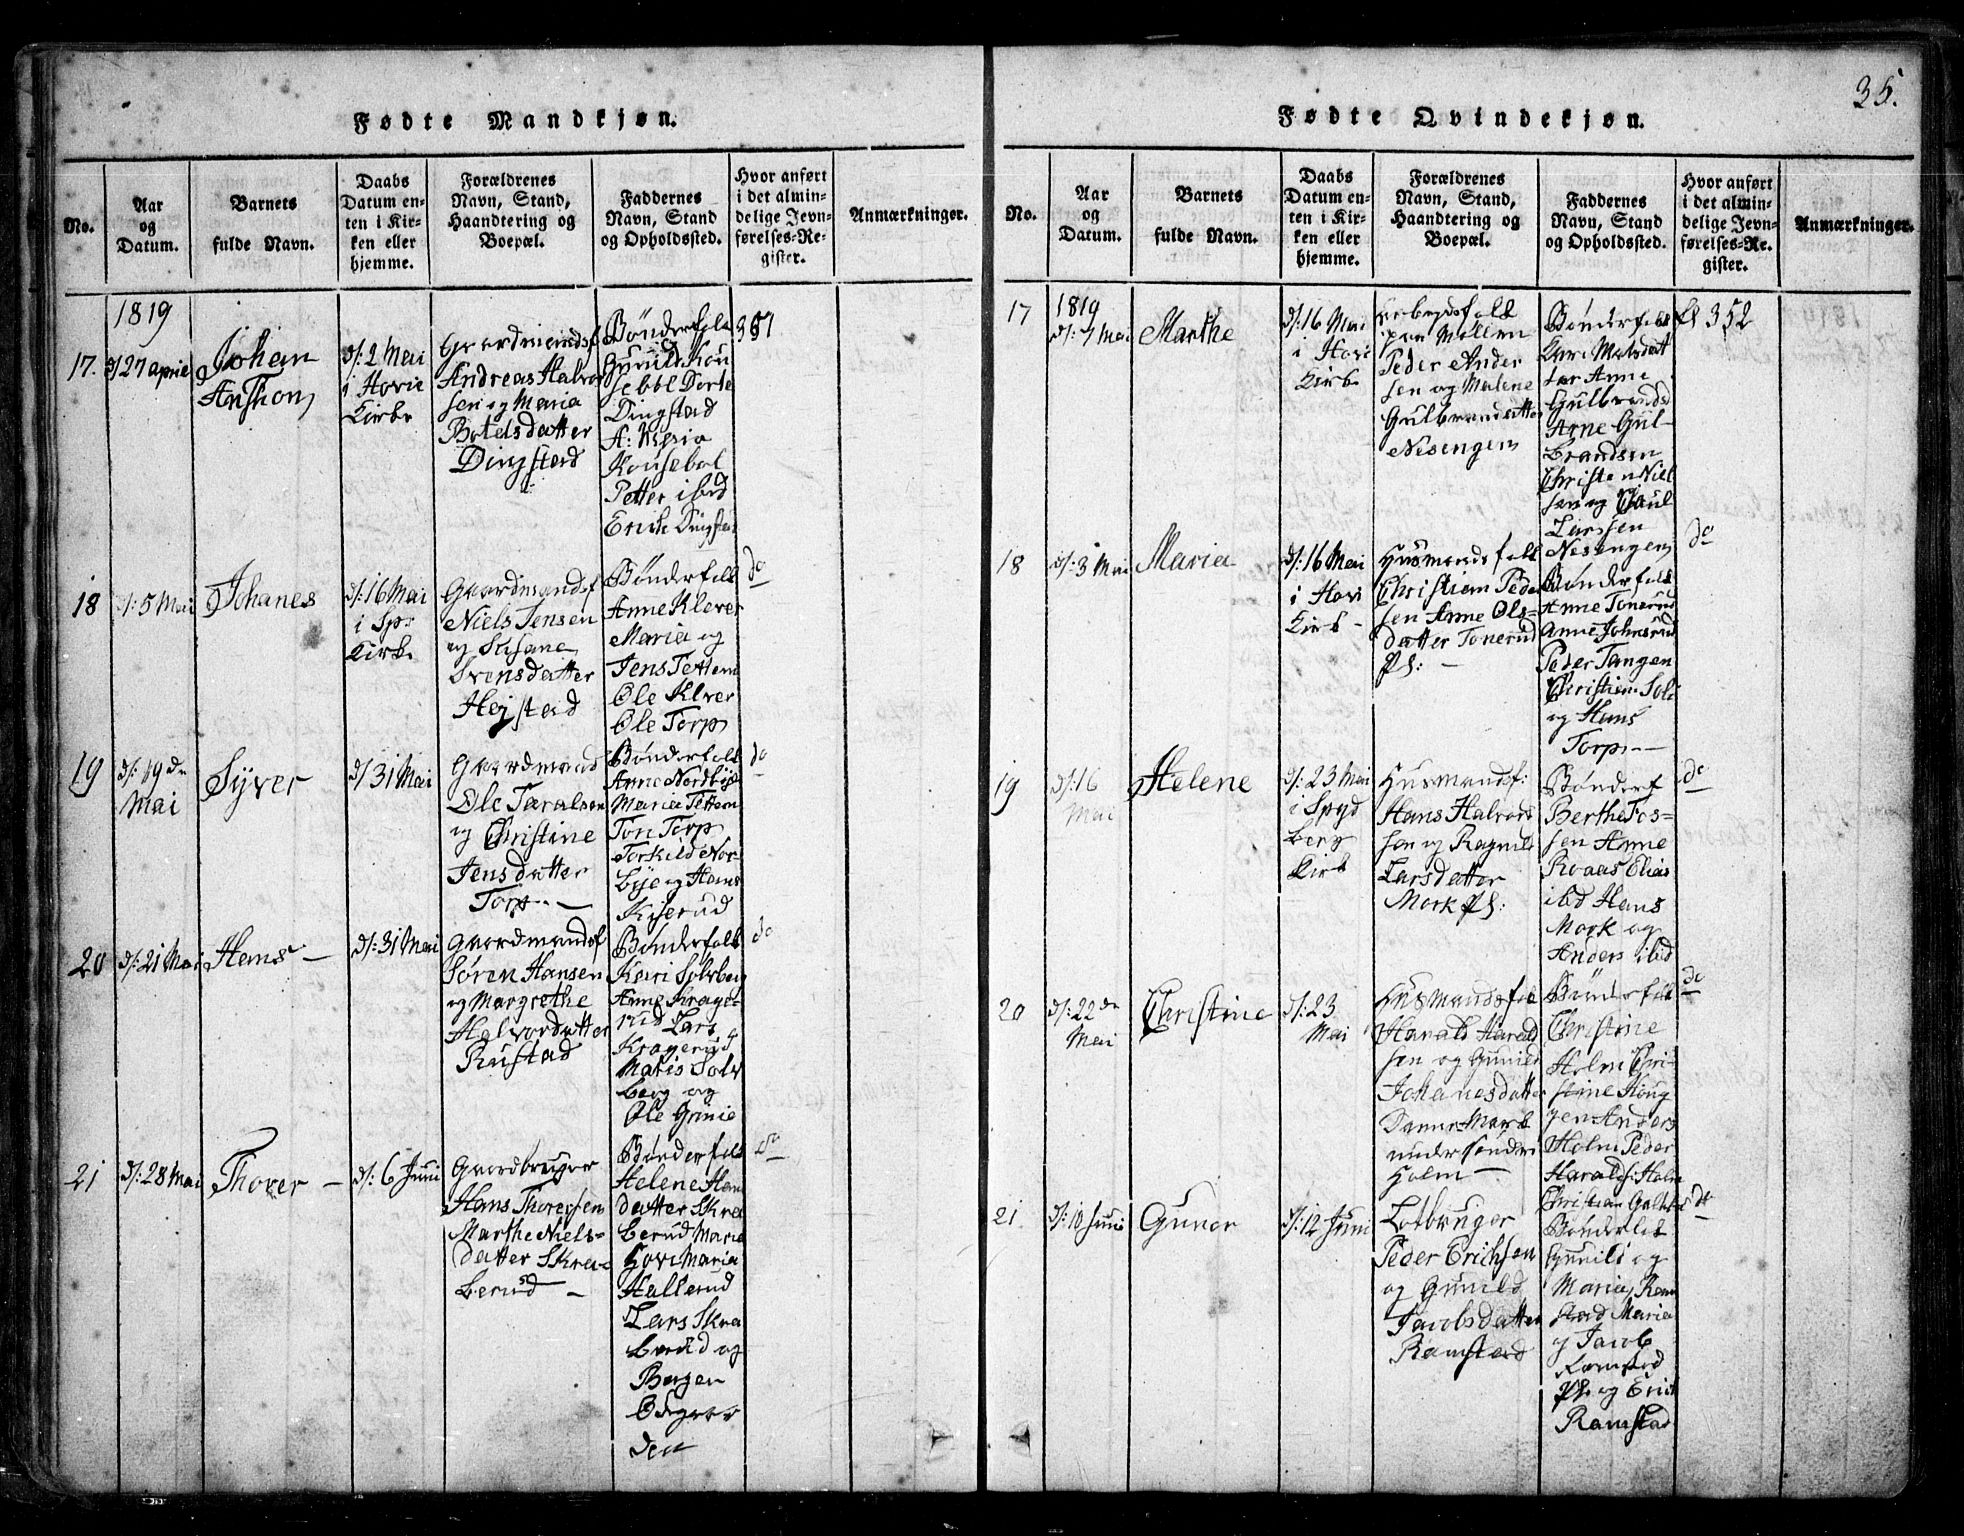 35.
Fødte Mandkjøn.
No.
Aar
og
Datum.
Barnets
fulde Navn.
Daabs
Datum en-
ten i Kir-
ken eller
hjemme.
Forældrenes
Navn, Stand,
Haandtering og
Boepæl.
Faddernes
Navn, Stand
og Opholdssted.
Hvor anført
i det almin-
delige Jevn-
førelses-Re-
gister.
Anmærkninger.
1819
17.
d/27 april
Johan
Anthon
d/: 2 Mai
i Hovie
Kirke
Gaardmandsf
Andreas Halvor
sen og Maria
Botelsdatter
Dingstad
Bønderfolk
Gunild Kou
sebøl Dorte
Dingstad
Kousebøl
Petter ibid
Erich Dingstad
18
d/: 5 Mai
Johanes
d/: 16 Mai
i Sp:
Kirke
Gaardmandsf
Niels Jensen
og Susane
Svensdatter
Hejstad
Bønderfolk
Anne Klever
Maria og
Jens Tettem
Ole Klever
Ole Torp
do
19
d/: 19 de
Mai
Syver
d/ 31 Mai
Gaardmand
Ole Taralsen
og Christine
Jensdatter
Torp. —
Bønderfolk
Anne Nordbye
Maria Tettem
Jon Torp
Torkild Nor-
bye og Hans
Kiserud
do
20
d/: 21 Mai
Hans —
d/: 31 Mai
Gaardmandsf
Søren Hansen
og Margrethe
Halvordatter
Rustad
Bønderfolk
Kari Solberg
Anne Krage-
rud Lars
Kragerud
Matis Solv
berg og
Ole Grinie
do
21
d/: 28 Mai
Thover —
d/: 6 Juni
Gaardbruger
Hans Thoresen
Marthe Niels-
datter Skra-
berud —
Bønderfolk
Helene Hans
datter Skra
berud Marie
Hovi Maria
Hallerud
Lars Skra
berud og
Børgen
den
do
Fødte Qvindekjøn.
No.
Aar
og
Datum.
Barnets
fulde Navn.
Daabs
Datum en-
ten i Kir-
ken eller
hjemme.
Forældrenes
Navn, Stand,
Haandtering og
Boepæl.
Faddernes
Navn, Stand
og Opholdssted.
Hvor anført
i det almin-
delige Jevn-
førelses-Re-
gister.
Anmærkninger.
17
1819
d/: 7 Mai
Marthe
d/: 16 Mai
i Hovi
Kirke
Peder Ander
sen og Malene
Gulbrandsdatter
Nesengen
Bønderfolk
Anne
Gulbrandsd
Arne Gul-
brandsen
Christen Niel
sen og Poul
Larssen
Nesengen
352
18
d/: 3 Mai
Maria
d/: 16 Mai
i Hovi
Kirk —
Husmandsfolk
Christian Peder
sen Anne Ols-
datter Tonerud
Pl: —
Bønderfolk
Anne Tonerud
Anne Johnsrud
Peder Tangen
Christian Soli
og Hans
Torp —
do
19
d/: 16
Mai
Helene
d/: 23 Mai
i Spyd
berg
Kirk
Husmandsf:
Hans Halvord
sen og Ragnild
Larsdatter
Mork Pl:
Bønderf
Berthe Fos-
sen Anne
Roaas Elias
ibid Hans
Mork og
Anders ibid
do
20
d/: 22 de
Mai
Christine
d/: 23
Mai
Husmandsfolk
Harald Harald
sen og Gunild
Johanesdatter
under søndre
Holm —
Bønderfolk
Christine
Holm Chri-
stine Houg
gen Anders
Holm Peder
Haralds: Holm
Christian
do
21
d/: 10 Juni
Gunor
d/: 12 Juni
Lotbruger
Peder Erichsen
og Gunild
Jacobsdatter
Ramstad
Bønderfolk
Gunild og
Maria Ram
stad Maria
og Jacob
Ramstad
Pl. og Erich
Ramstad
do